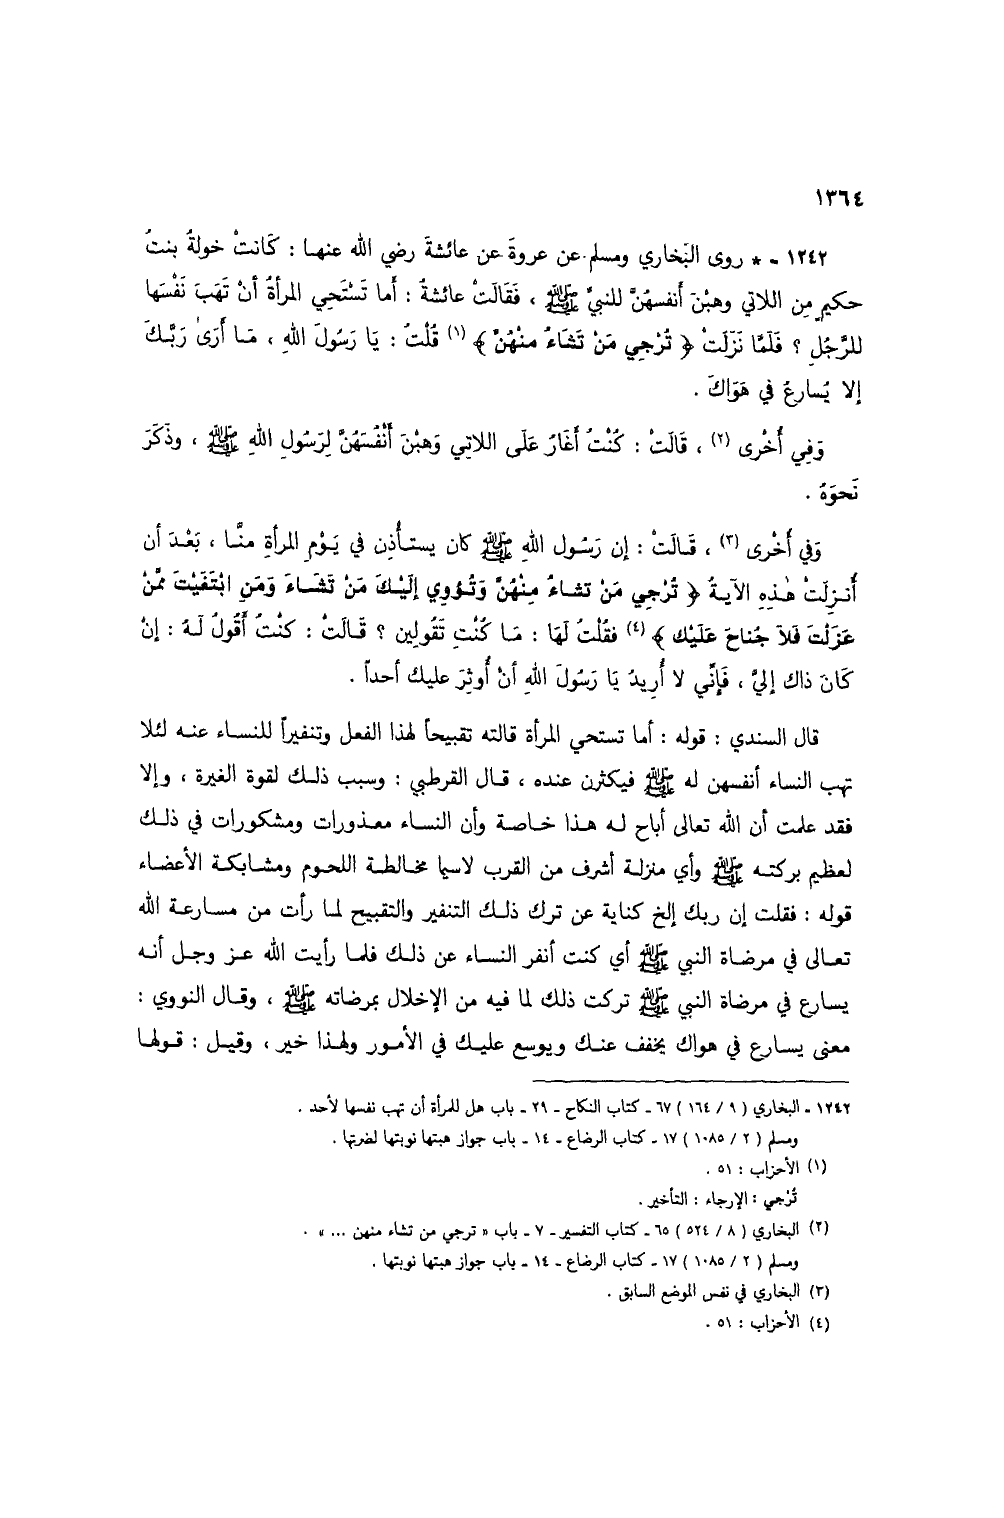 ١٣٦٤
١٢٤٢ - * روى البخاري ومسلم عن عروةَ عن عائشةَ رضي الله عنها : كَانتْ خولةُ بنتُ
حكيمٍ مِن اللاتي وهبْنَ أَنفسهُنَّ للنبيِّ ﷺ ، فَقَالَتْ عائشةُ : أَما تَسْتَحي المرأةُ أنْ تَهَبَ نَفْسَها
للرَّجُلِ ؟ فَلَمَّا نَزَلَتْ ﴿ تُرْجي مَنْ تَشَاءُ منْهُنَّ ﴾ (١) قُلْتُ : يَا رَسُولَ اللهِ ، مَا أَرَىٰ رَبَّكَ
إلا يُسارعُ في هَوَاكَ .
وَفِي أُخْرى (٢) ، قَالَتْ : كُنْتُ أَغَارُ عَلَى اللاتي وَهبْنَ أَنْفُسَهُنَّ لِرَسُولِ اللهِ ﷺ ، وذَكَرَ
نَحوَهُ .
وَفي أُخْرى (٣) ، قَالَتْ : إن رَسُول اللهِ ﷺ كان يستأُذِن في يَوْمِ المرأةِ منَّا ، بَعْدَ أن
أُنزلَتْ هٰذِهِ الآيةُ ﴿ تُرْجي مَنْ تشاءُ مِنْهُنَّ وَتُؤوي إلَيْكَ مَنْ تَشَاءَ وَمَنِ ابْتَغَيْتَ ممَّنْ
عَزَلْتَ فَلاَ جُناحَ عَلَيْك ﴾ (٤) فقُلْتُ لَهَا : مَا كُنْتِ تَقُولِين ؟ قَالَتْ : كنْتُ أقُولُ لَهُ : إنْ
كَانَ ذاك إليَّ ، فَإنِّي لا أُرِيدُ يَا رَسُولَ اللهِ أنْ أُوثِرَ عليك أحداً .
قال السندي : قوله : أما تستحي المرأة قالته تقبيحاً لهذا الفعل وتنفيراً للنساء عنه لئلا
تهب النساء أنفسهن له ﷺ فيكثرن عنده ، قال القرطبي : وسبب ذلك لقوة الغيرة ، وإلا
فقد علمت أن الله تعالى أباح له هذا خاصة وأن النساء معذورات ومشكورات في ذلك
لعظيم بركته ﷺ وأي منزلة أشرف من القرب لاسيما مخالطة اللحوم ومشابكة الأعضاء
قوله : فقلت إن ربك إلخ كناية عن ترك ذلك التنفير والتقبيح لما رأت من مسارعة الله
تعالى في مرضاة النبي ﷺ أي كنت أنفر النساء عن ذلك فلما رأيت الله عز وجل أنه
يسارع في مرضاة النبي ﷺ تركت ذلك لما فيه من الإخلال بمرضاته ﷺ ، وقال النووي :
معنى يسارع في هواك يخفف عنك ويوسع عليك في الأمور ولهذا خير ، وقيل : قولها
١٢٤٢ - البخاري ( ٩ / ١٦٤ ) ٦٧ - كتاب النكاح - ٢٩ - باب هل للمرأة أن تهب نفسها لأحد .
ومسلم ( ٢ / ١٠٨٥ ) ١٧ - كتاب الرضاع - ١٤ - باب جواز هبتها نوبتها لضرتها .
(١) الأحزاب : ٥١ .
تُرْجي : الإرجاء : التأخير .
(٢) البخاري ( ٨ / ٥٢٤ ) ٦٥ - كتاب التفسير - ٧ - باب « ترجي من تشاء منهن ... » .
ومسلم ( ٢ / ١٠٨٥ ) ١٧ - كتاب الرضاع - ١٤ - باب جواز هبتها نوبتها .
(٣) البخاري في نفس الموضع السابق .
(٤) الأحزاب : ٥١ .